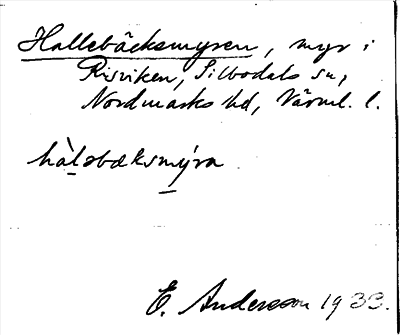 Hallebäcksmyren, myr i
Risviken, Silbodals sn,
Nordmarks hd, Värml. l.
hàləbæksmýra
E. Andersson 1933.